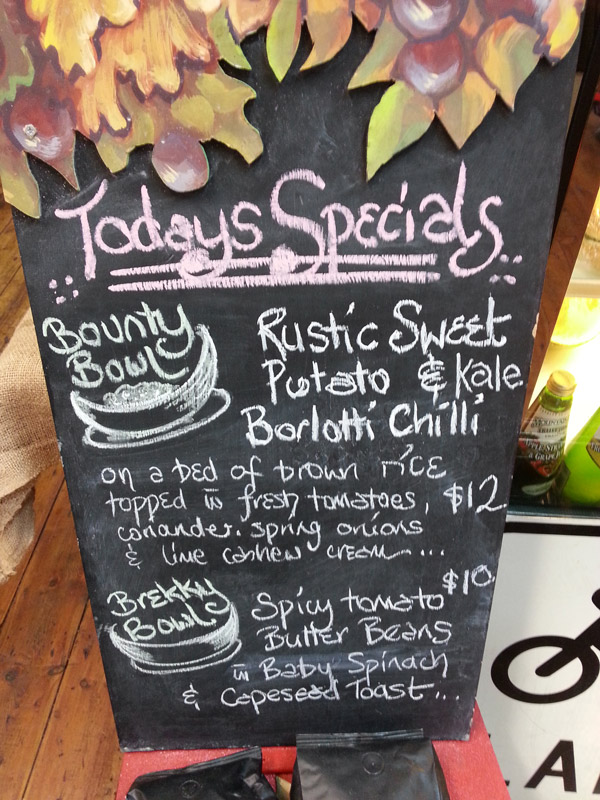 Todays Specials
Bounty
Bowl
Rustic Sweet
Potato & Kale
Borlotti Chilli
on a bed of brown rice
topped w fresh tomatoes, $12
coriander, spring onions
& lime cashew cream ...
Brekky
Bowl
$10.
Spicy tomato
Butter Beans
w Baby Spinach
& Capeseed Toast...
LA